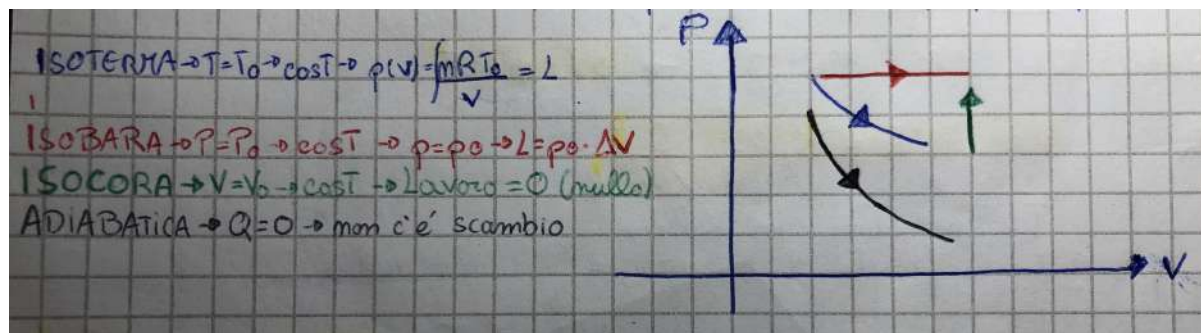 ISOTERMA → T=T₀ → cosT → p(V)=∫nRT₀/V = L
ISOBARA → P=P₀ → cosT → p=p₀ → L=p₀·ΔV
ISOCORA → V=V₀ → cosT → Lavoro=0 (nullo)
ADIABATICA → Q=0 → non c'é scambio
P
V